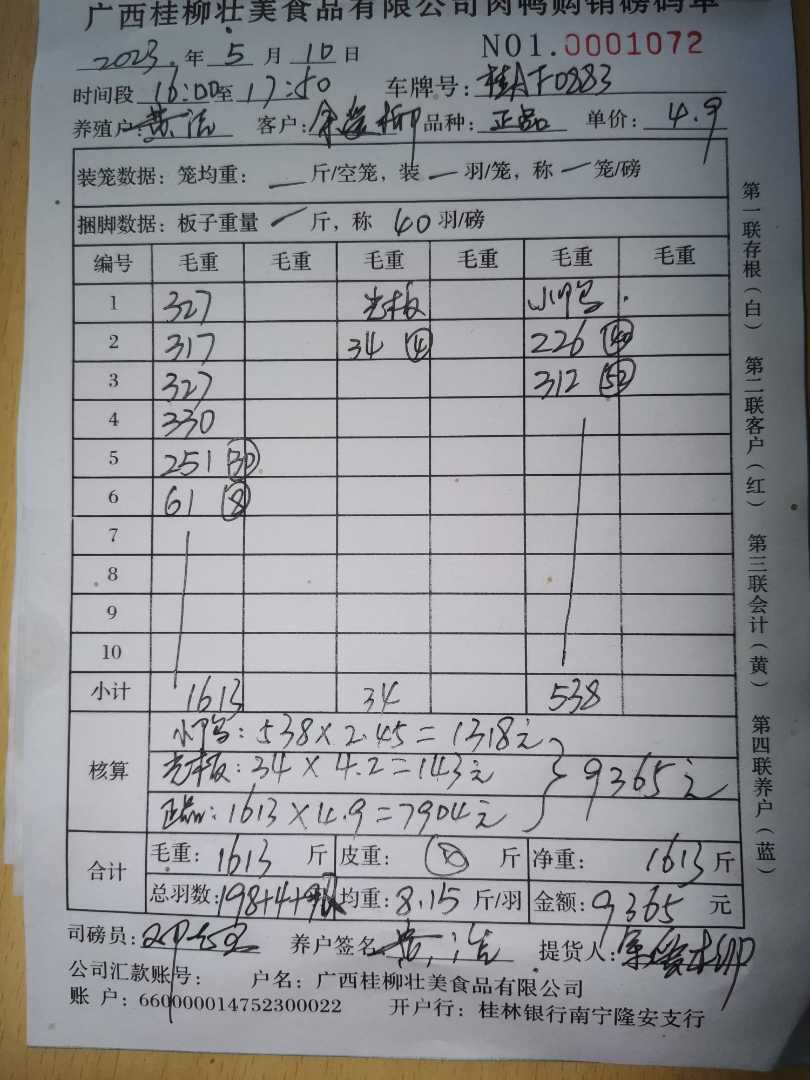 广西桂柳壮美食品有限公司肉鸭购销磅码单
2023 年 5 月 10 日 NO1.0001072
时间段 16:00至17:50 车牌号:桂AF0883
养殖户: 黄 客户: 柳 品种: 正品 单价: 4.9
装笼数据:笼均重: — 斤/空笼,装 — 羽/笼,称 — 笼/磅
捆脚数据:板子重量 — 斤,称 40 羽/磅
编号 毛重 毛重 毛重 毛重 毛重 毛重
1 327 光板 小鸭
2 317 34 (4) 226 (40)
3 327 312 (52)
4 330
5 251 (30)
6 61 (8)
7
8
9
10
小计 1613 34 538
小鸭:538×2.45=1318元
核算 光板:34×4.2=143元 9365元
正品:1613×4.9=7904元
合计 毛重:1613 斤 皮重: 斤 净重: 1613 斤
总羽数:198+4+92 均重:8.15 斤/羽 金额:9365 元
司磅员: 养户签名 黄 提货人: 柳
公司汇款账号: 户名:广西桂柳壮美食品有限公司
账 户:660000014752300022 开户行:桂林银行南宁隆安支行
第一联存根(白) 第二联客户(红) 第三联会计(黄) 第四联养户(蓝)